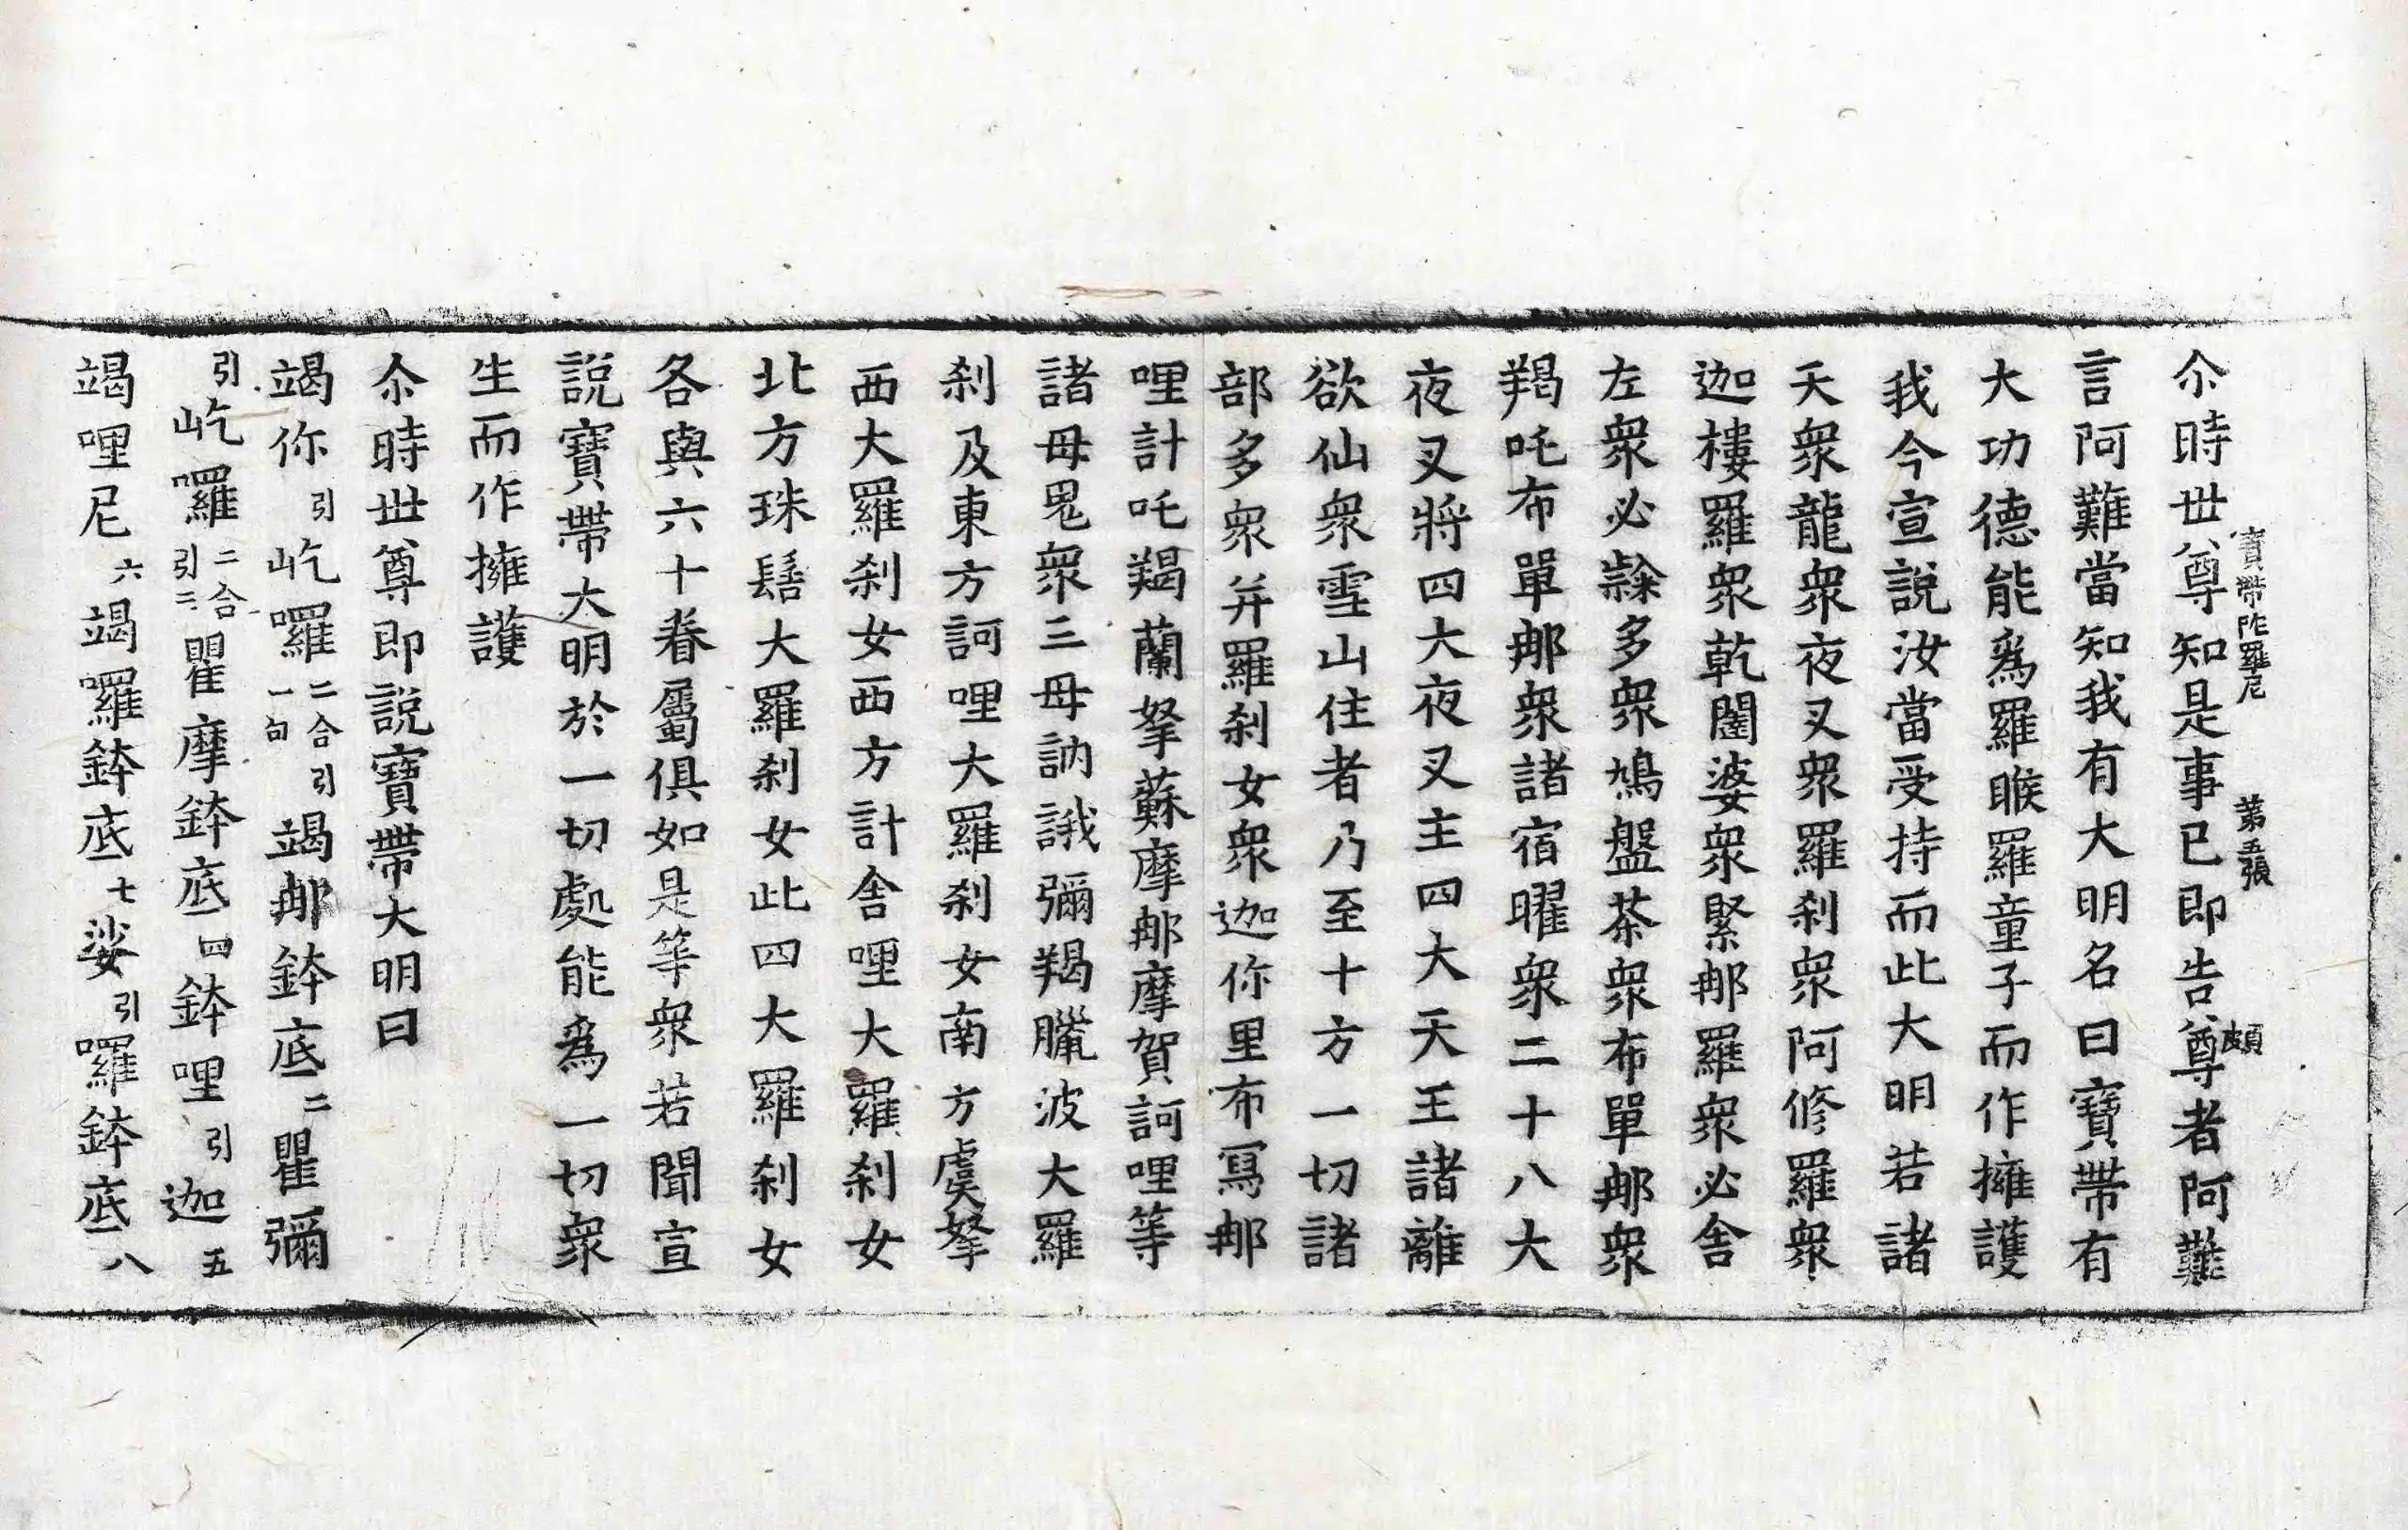 尒時世尊知是事已即告尊者阿難
寶帶陀羅尼 第五張 頗
言阿難當知我有大明名曰寶帶有
大功德能爲羅睺羅童子而作擁護
我今宣說汝當受持而此大明若諸
天衆龍衆夜叉衆羅刹衆阿修羅衆
迦樓羅衆乾闥婆衆緊那羅衆必舍
左衆必隸多衆鳩盤茶衆布單那衆
羯吒布單那衆諸宿曜衆二十八大
夜叉將四大夜叉主四大天王諸離
欲仙衆雪山住者乃至十方一切諸
部多衆并羅刹女衆迦你里布冩那
哩計吒羯蘭拏蘇摩那摩賀訶哩等
諸母鬼衆三母訥誐彌羯臈波大羅
刹及東方訶哩大羅刹女南方虞拏
西大羅刹女西方計舍哩大羅刹女
北方珠髻大羅刹女此四大羅刹女
各與六十眷屬俱如是等衆若聞宣
說寶帶大明於一切處能爲一切衆
生而作擁護
尒時世尊即說寶帶大明曰
竭你引屹囉二合引一句竭那鉢底二瞿彌
引屹囉二合引三瞿摩鉢底四鉢哩引迦五
竭哩尼六竭囉鉢底七娑引囉鉢底八